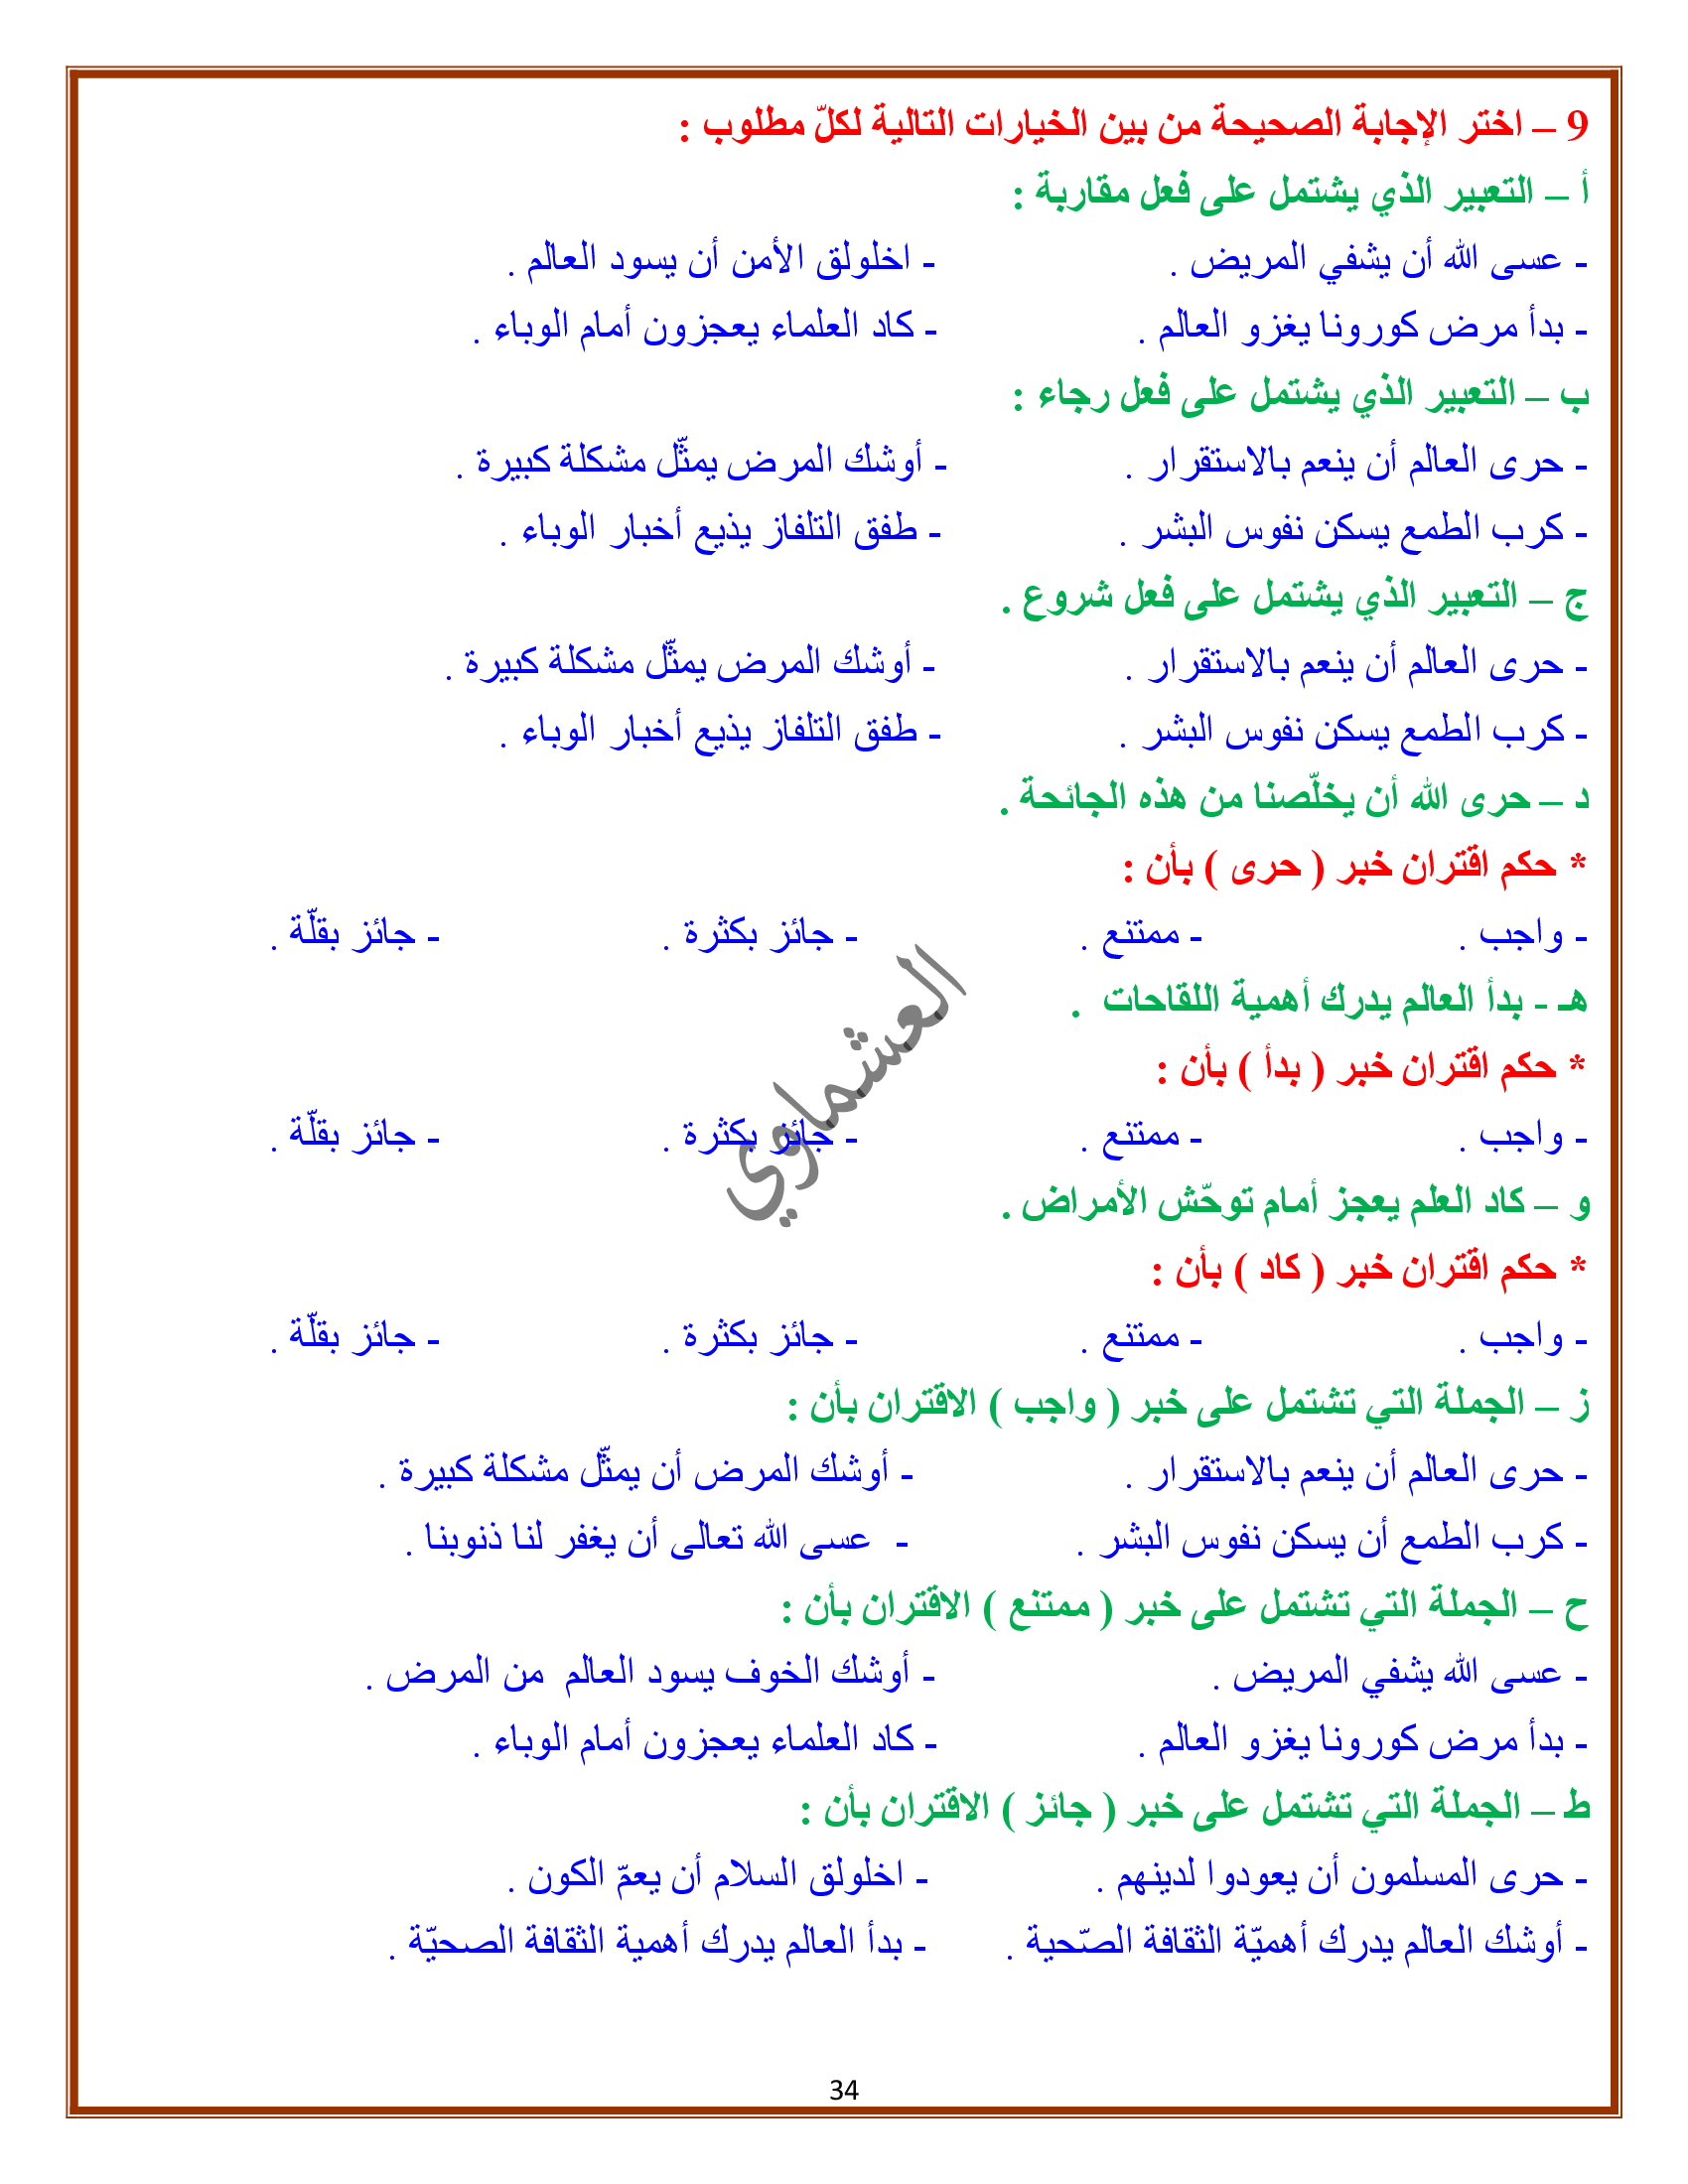 9 – اختر الإجابة الصحيحة من بين الخيارات التالية لكلّ مطلوب :
أ – التعبير الذي يشتمل على فعل مقاربة :
- عسى الله أن يشفي المريض . - اخلولق الأمن أن يسود العالم .
- بدأ مرض كورونا يغزو العالم . - كاد العلماء يعجزون أمام الوباء .
ب – التعبير الذي يشتمل على فعل رجاء :
- حرى العالم أن ينعم بالاستقرار . - أوشك المرض يمثّل مشكلة كبيرة .
- كرب الطمع يسكن نفوس البشر . - طفق التلفاز يذيع أخبار الوباء .
ج – التعبير الذي يشتمل على فعل شروع .
- حرى العالم أن ينعم بالاستقرار . - أوشك المرض يمثّل مشكلة كبيرة .
- كرب الطمع يسكن نفوس البشر . - طفق التلفاز يذيع أخبار الوباء .
د – حرى الله أن يخلّصنا من هذه الجائحة .
* حكم اقتران خبر ( حرى ) بأن :
- واجب . - ممتنع . - جائز بكثرة . - جائز بقلّة .
هـ - بدأ العالم يدرك أهمية اللقاحات .
* حكم اقتران خبر ( بدأ ) بأن :
- واجب . - ممتنع . - جائز بكثرة . - جائز بقلّة .
و – كاد العلم يعجز أمام توحّش الأمراض .
* حكم اقتران خبر ( كاد ) بأن :
- واجب . - ممتنع . - جائز بكثرة . - جائز بقلّة .
ز – الجملة التي تشتمل على خبر ( واجب ) الاقتران بأن :
- حرى العالم أن ينعم بالاستقرار . - أوشك المرض أن يمثّل مشكلة كبيرة .
- كرب الطمع أن يسكن نفوس البشر . - عسى الله تعالى أن يغفر لنا ذنوبنا .
ح – الجملة التي تشتمل على خبر ( ممتنع ) الاقتران بأن :
- عسى الله يشفي المريض . - أوشك الخوف يسود العالم من المرض .
- بدأ مرض كورونا يغزو العالم . - كاد العلماء يعجزون أمام الوباء .
ط – الجملة التي تشتمل على خبر ( جائز ) الاقتران بأن :
- حرى المسلمون أن يعودوا لدينهم . - اخلولق السلام أن يعمّ الكون .
- أوشك العالم يدرك أهميّة الثقافة الصّحية . - بدأ العالم يدرك أهمية الثقافة الصحيّة .
العشماوي
34